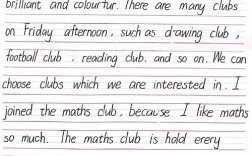 brilliant and colourfur. There are many clubs
on Friday afternoon, such as drawing club,
football club, reading club. and so on. We can
choose clubs which we are interested in. I
joined the maths club, because I like maths
so much. The maths club is hold erery